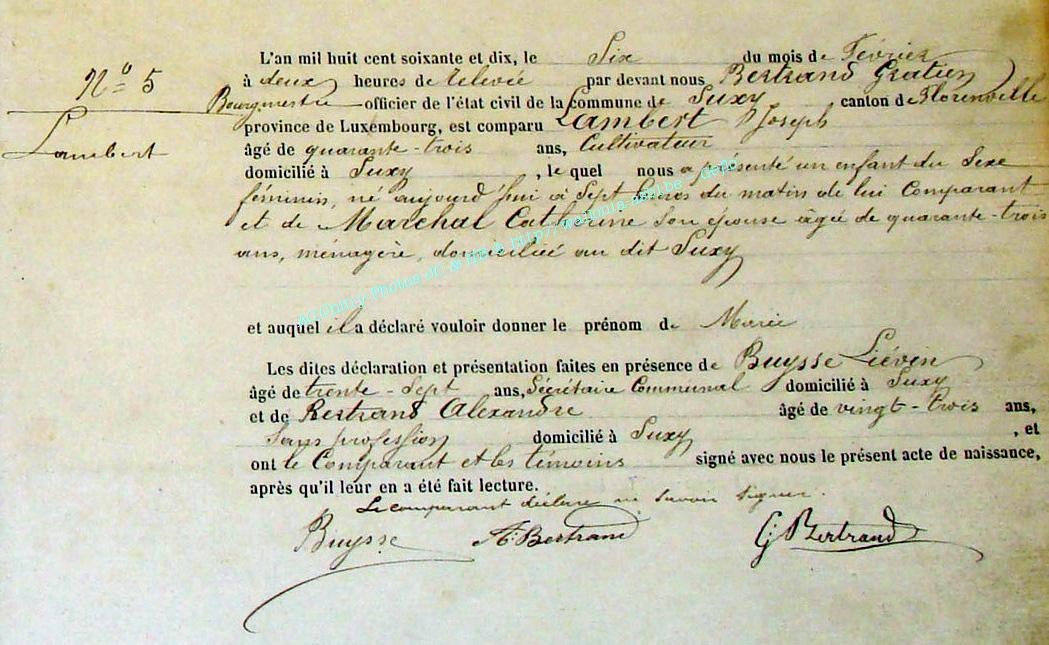 L'an mil huit cent soixante et dix, le Six du mois de Février
N° 5
à deux heures de relevée par devant nous Bertrand Gratien
Bourgmestre officier de l'état civil de la commune de Suxy canton de Florenville
Lambert
province de Luxembourg, est comparu Lambert Joseph
âgé de quarante-trois ans, Cultivateur
domicilié à Suxy, le quel nous a présenté un enfant du Sexe
féminin, né aujourd'hui à Sept heures du matin de lui Comparant
et de Maréchal Catherine Son épouse âgée de quarante-trois
ans, ménagère, domiciliée au dit Suxy
et auquel il a déclaré vouloir donner le prénom de Marie
Les dites déclaration et présentation faites en présence de Buysse Liévin
âgé de trente-Sept ans, Sécrétaire Communal domicilié à Suxy
et de Bertrand Alexandre âgé de vingt-trois ans,
Sans profession domicilié à Suxy, et
ont le Comparant et les témoins signé avec nous le présent acte de naissance,
après qu'il leur en a été fait lecture.
Le comparant déclare ne Savoir Signer.
Buysse A. Bertrand G. Bertrand